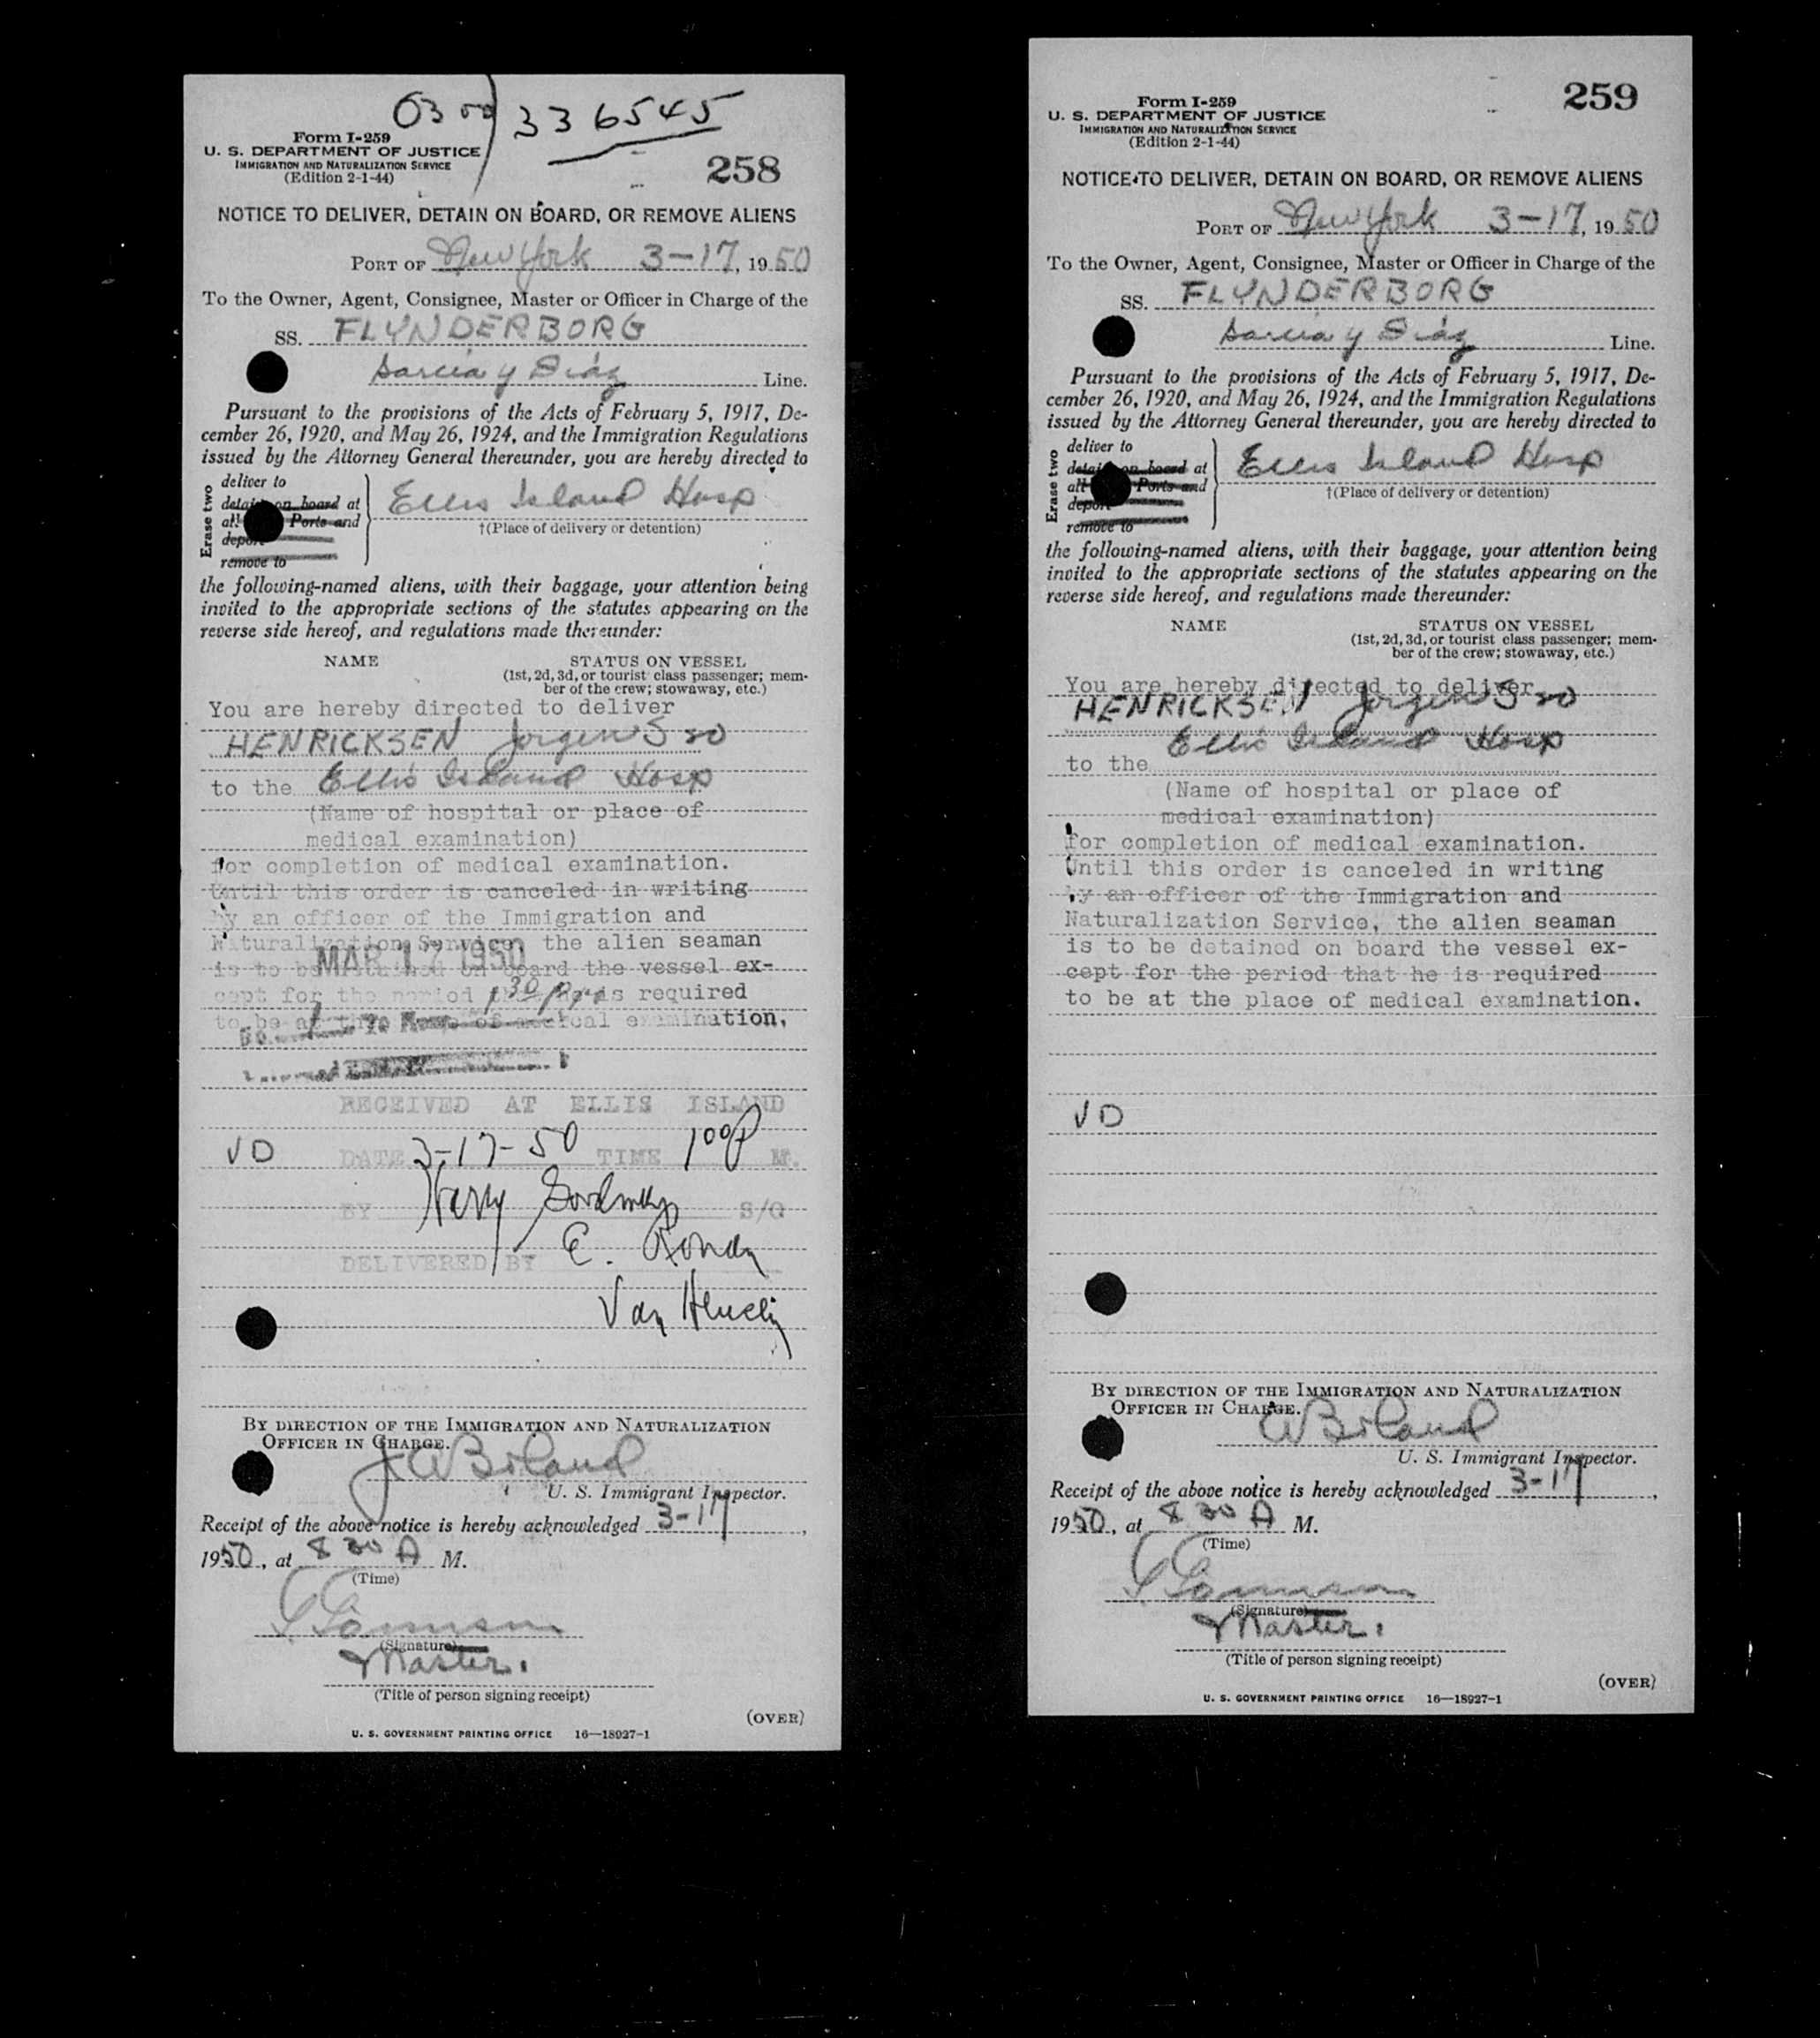 0300/336545
Form I-259
U. S. DEPARTMENT OF JUSTICE
IMMIGRATION AND NATURALIZATION SERVICE
(Edition 2-1-44)
258
NOTICE TO DELIVER, DETAIN ON BOARD, OR REMOVE ALIENS
PORT OF New York 3-17, 1950
To the Owner, Agent, Consignee, Master or Officer in Charge of the
SS. FLYNDERBORG
Garcia y Diaz Line.
Pursuant to the provisions of the Acts of February 5, 1917, De-
cember 26, 1920, and May 26, 1924, and the Immigration Regulations
issued by the Attorney General thereunder, you are hereby directed to
Erase two
deliver to
detain on board at
all Ports and
deport
remove to
Ellis Island Hosp
†(Place of delivery or detention)
the following-named aliens, with their baggage, your attention being
invited to the appropriate sections of the statutes appearing on the
reverse side hereof, and regulations made thereunder:
NAME STATUS ON VESSEL
(1st, 2d, 3d, or tourist class passenger; mem-
ber of the crew; stowaway, etc.)
You are hereby directed to deliver
HENRICKSEN Jorgen S 20
to the Ellis Island Hosp
(Name of hospital or place of
medical examination)
for completion of medical examination.
Until this order is canceled in writing
by an officer of the Immigration and
Naturalization Service, the alien seaman
MAR 17 1950
is to be detained on board the vessel ex-
cept for the period that he is required
to be at the place of medical examination.
RECEIVED AT ELLIS ISLAND
VD DATE 3-17-50 TIME 100P M.
BY Harry S/O
DELIVERED BY E.
Van
BY DIRECTION OF THE IMMIGRATION AND NATURALIZATION
OFFICER IN CHARGE.
U. S. Immigrant Inspector.
Receipt of the above notice is hereby acknowledged 3-17,
1950, at 8 30 A M.
(Time)
(Signature)
Master.
(Title of person signing receipt)
(OVER)
U. S. GOVERNMENT PRINTING OFFICE 16—18927-1
Form I-259
U. S. DEPARTMENT OF JUSTICE
IMMIGRATION AND NATURALIZATION SERVICE
(Edition 2-1-44)
259
NOTICE TO DELIVER, DETAIN ON BOARD, OR REMOVE ALIENS
PORT OF New York 3-17, 1950
To the Owner, Agent, Consignee, Master or Officer in Charge of the
SS. FLYNDERBORG
Garcia y Diaz Line.
Pursuant to the provisions of the Acts of February 5, 1917, De-
cember 26, 1920, and May 26, 1924, and the Immigration Regulations
issued by the Attorney General thereunder, you are hereby directed to
Erase two
deliver to
detain on board at
all Ports and
deport
remove to
Ellis Island Hosp
†(Place of delivery or detention)
the following-named aliens, with their baggage, your attention being
invited to the appropriate sections of the statutes appearing on the
reverse side hereof, and regulations made thereunder:
NAME STATUS ON VESSEL
(1st, 2d, 3d, or tourist class passenger; mem-
ber of the crew; stowaway, etc.)
You are hereby directed to deliver
HENRICKSEN Jorgen S 20
Ellis Island Hosp
to the
(Name of hospital or place of
medical examination)
for completion of medical examination.
Until this order is canceled in writing
by an officer of the Immigration and
Naturalization Service, the alien seaman
is to be detained on board the vessel ex-
cept for the period that he is required
to be at the place of medical examination.
VD
BY DIRECTION OF THE IMMIGRATION AND NATURALIZATION
OFFICER IN CHARGE.
U. S. Immigrant Inspector.
Receipt of the above notice is hereby acknowledged 3-17,
1950, at 8 30 A M.
(Time)
(Signature)
Master.
(Title of person signing receipt)
(OVER)
U. S. GOVERNMENT PRINTING OFFICE 16—18927-1